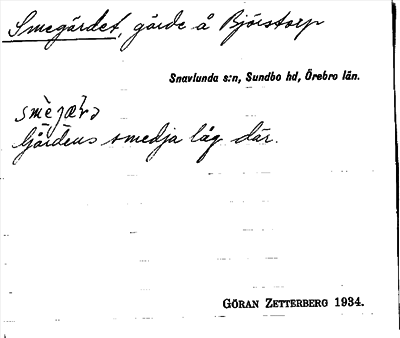 Smegärdet, gärde å Bjórstorp
Snavlunda s:n, Sundbo hd, Örebro län.
smejæ̀rə
Gårdens smedja låg där.
GÖRAN ZETTERBERG 1934.